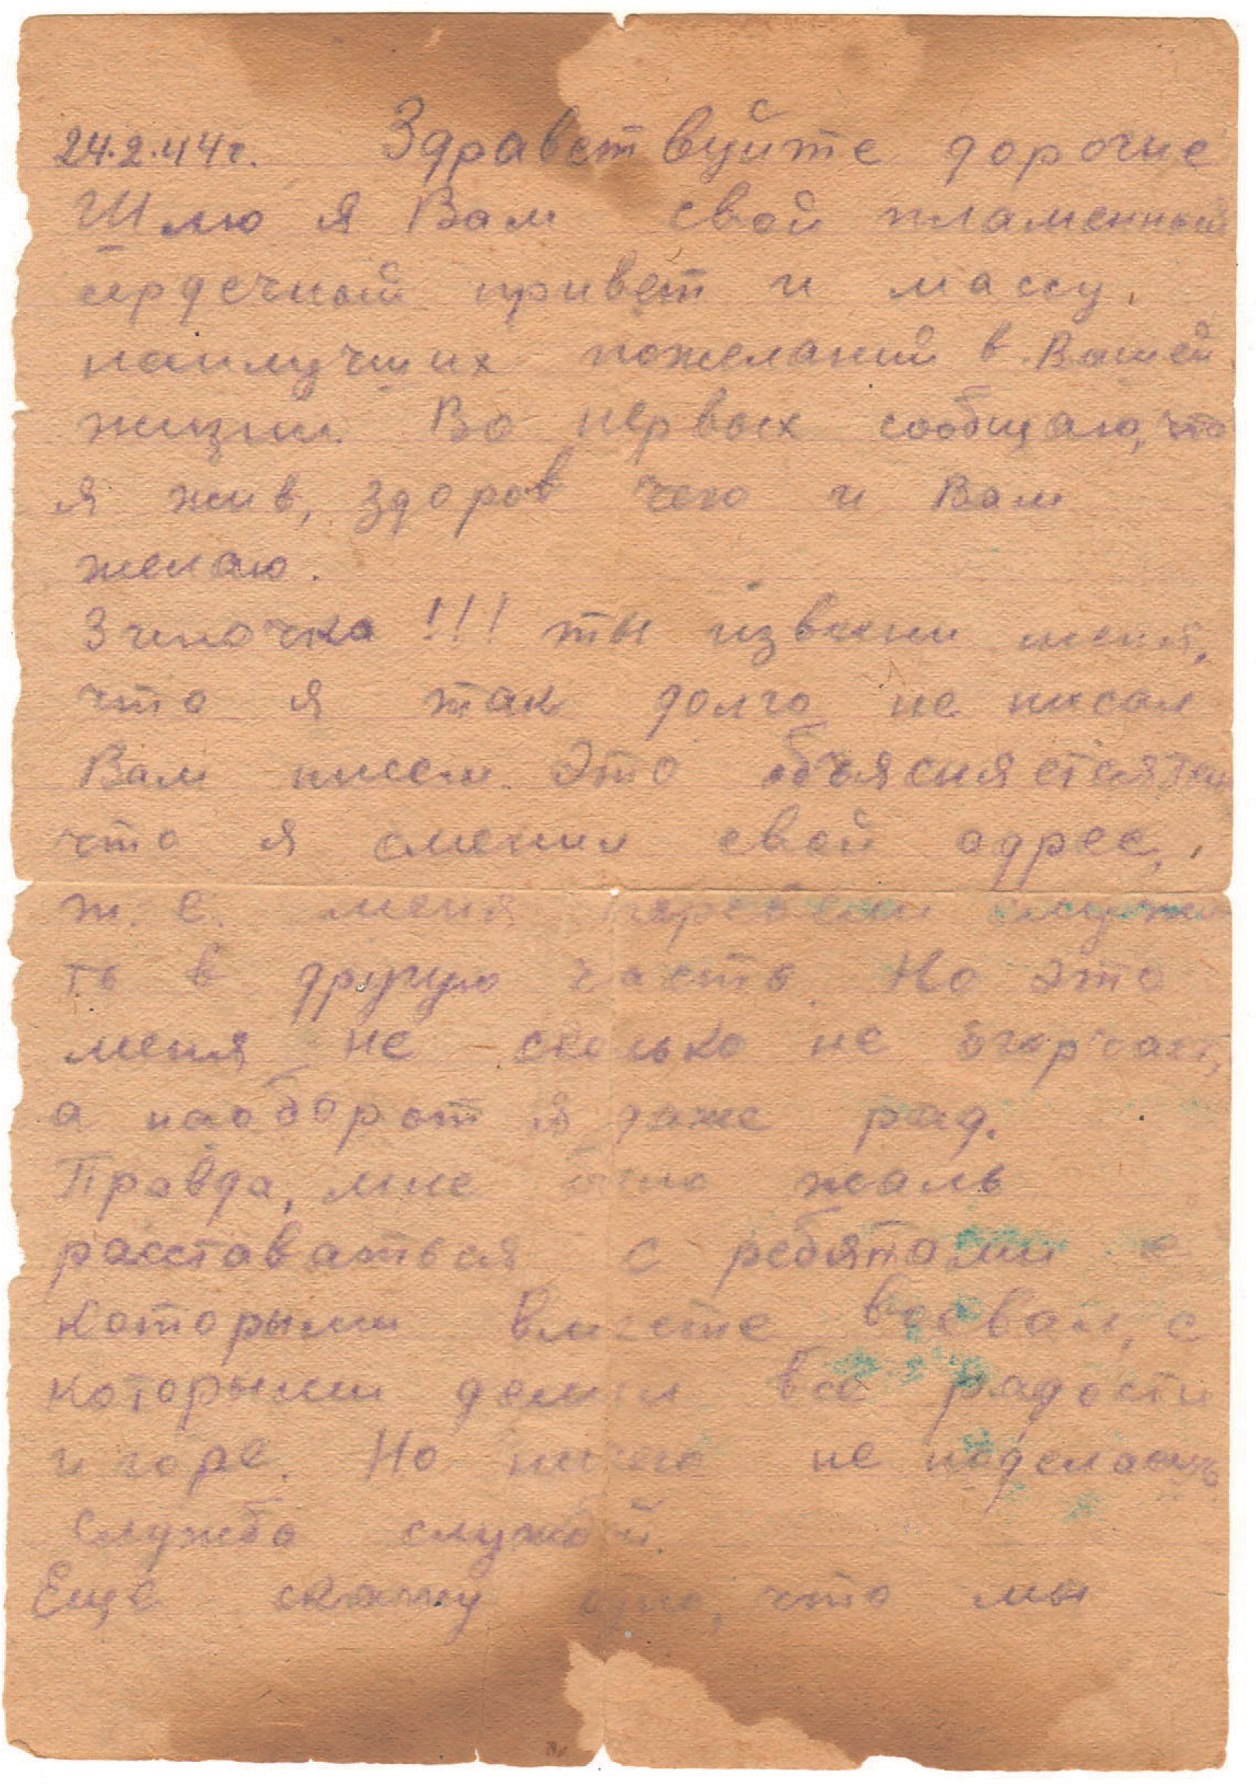 24.2.44г. Здравствуйте дорогие
Шлю я Вам свой пламенный
сердечный привет и массу
наилучших пожеланий в Вашей
жизни. Во первых сообщаю, что
я жив, здоров чего и Вам
желаю.
Зиночка!!! ты извини меня,
что я так долго не писал
Вам писем. Это объясняется тем
что я сменил свой адрес,
т.е. меня перевели служи
ть в другую часть. Но это
меня не сколько не огорчает,
а наоборот я даже рад.
Правда, мне было жаль
расставаться с ребятами с
которыми вместе воевал, с
которыми делил все радости
и горе. Но ничего не поделаешь
служба службой.
Еще скажу одно, что мы